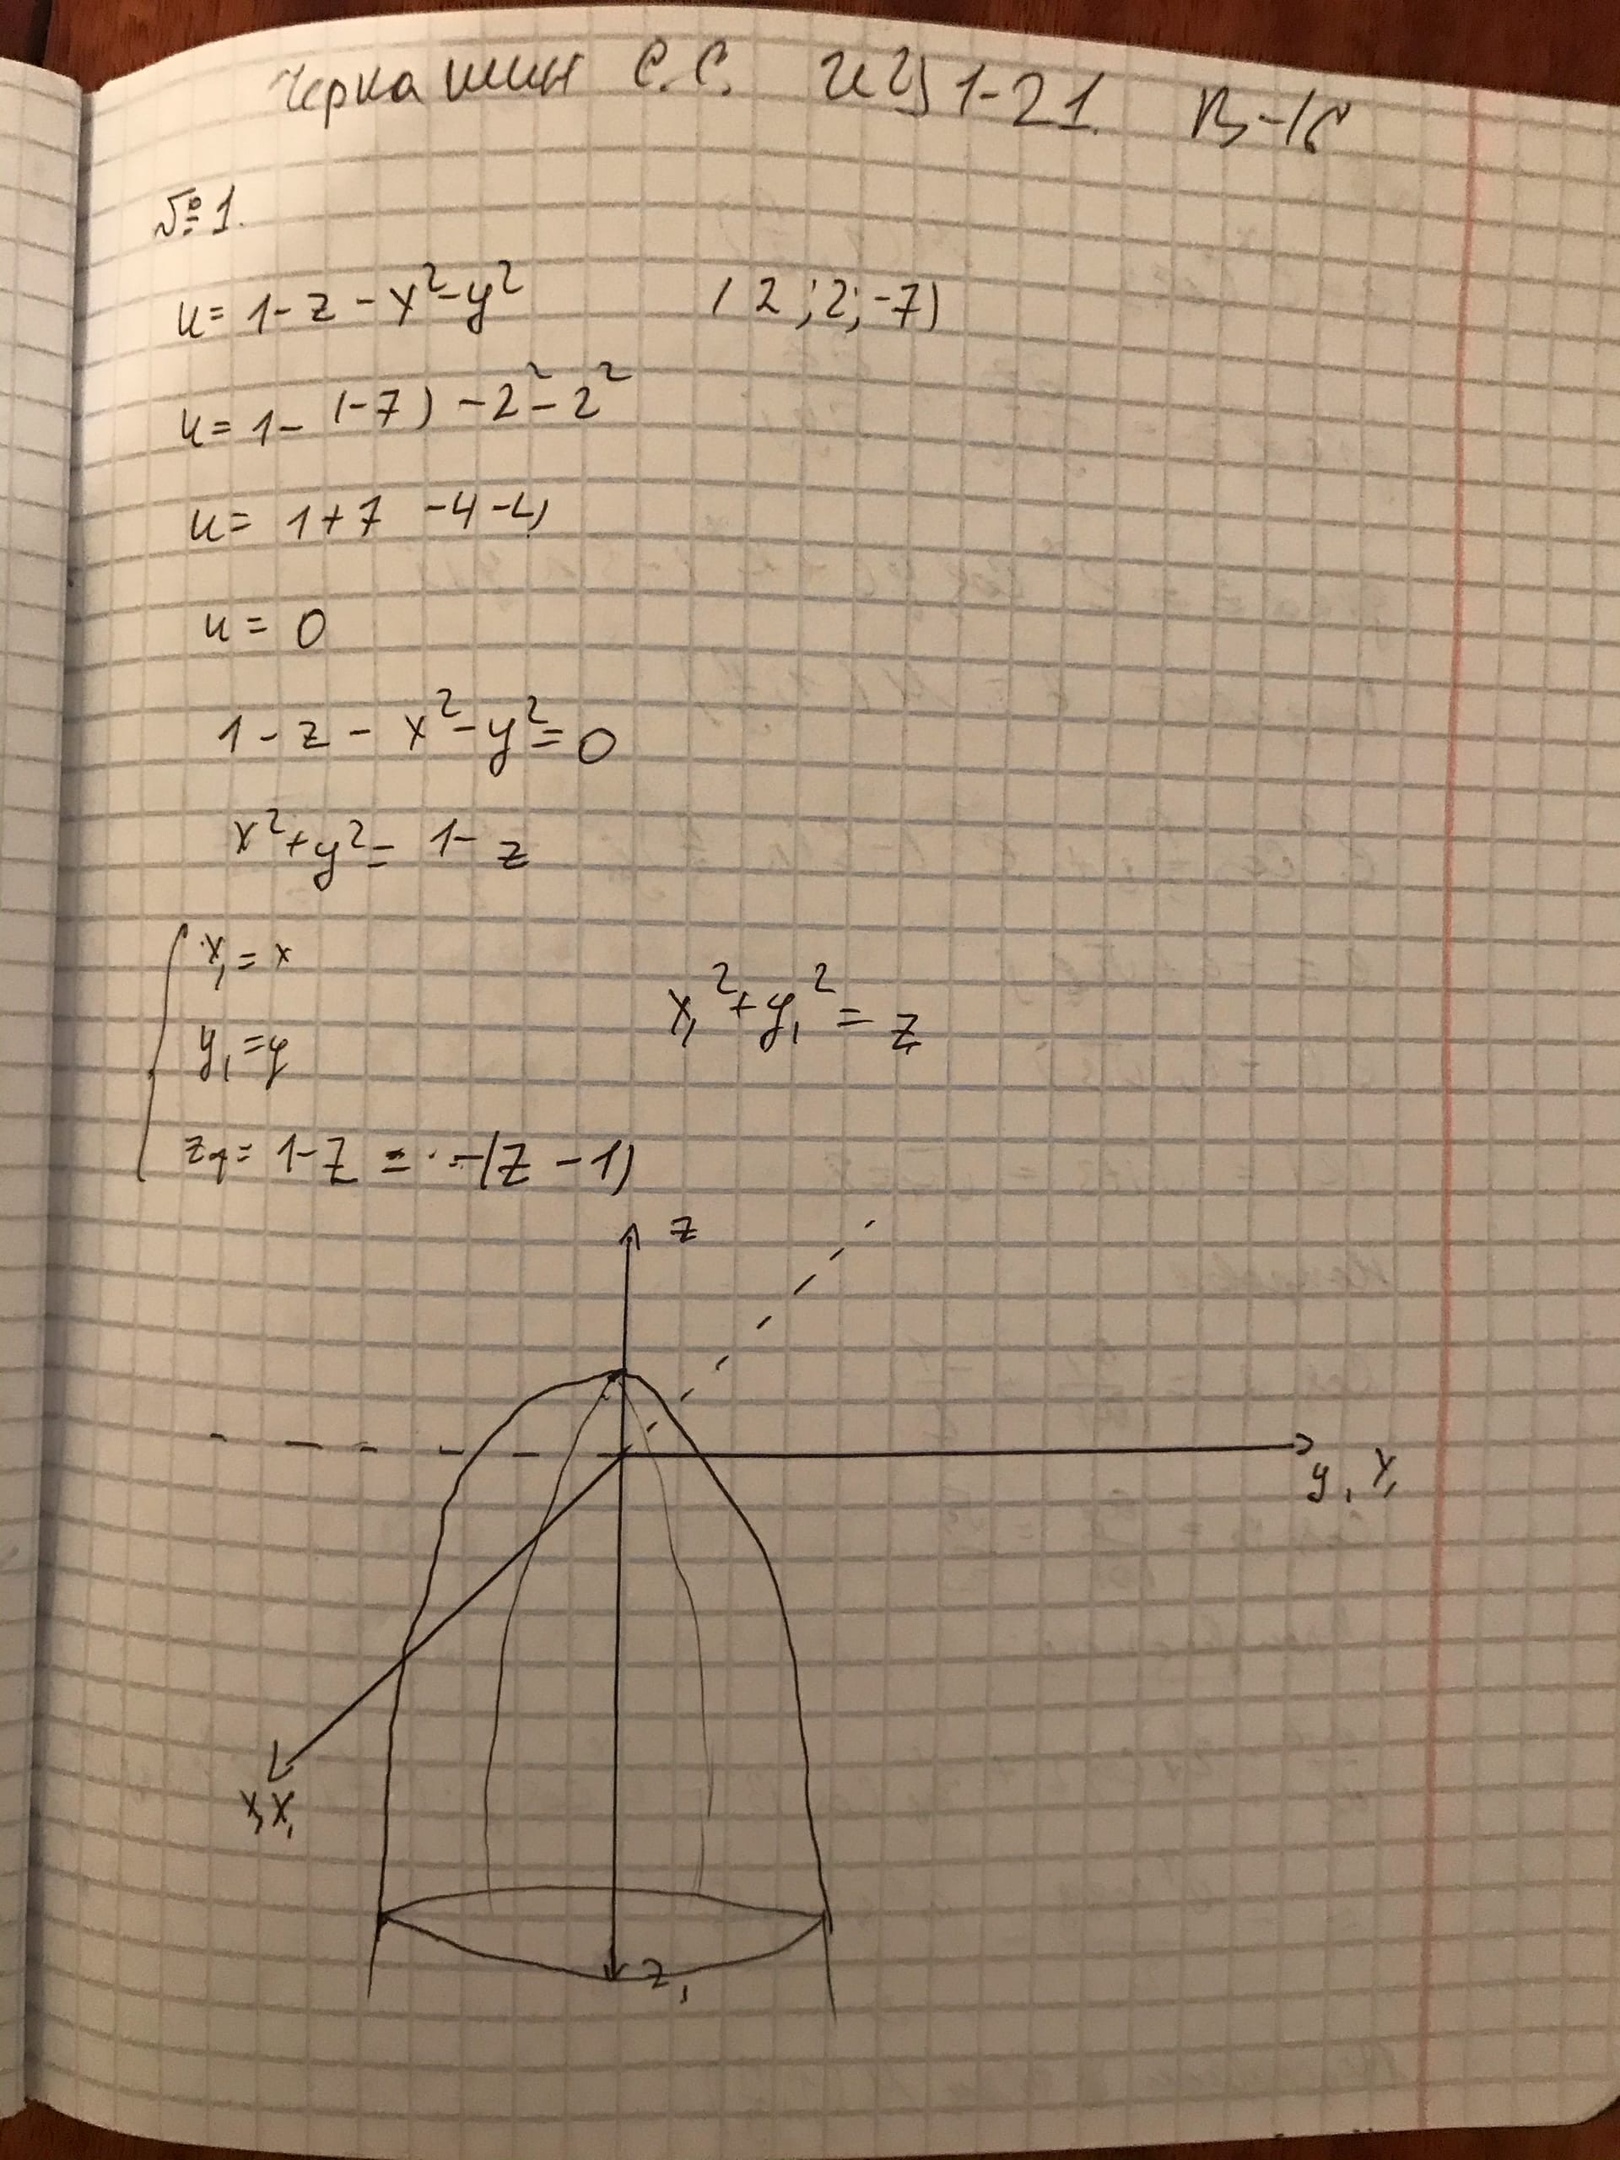 Черкашин С.С. ИУ1-21 В-16
№1.
u = 1 - z - x² - y² (2; 2; -7)
u = 1 - (-7) - 2² - 2²
u = 1 + 7 - 4 - 4
u = 0
1 - z - x² - y² = 0
x² + y² = 1 - z
x₁ = x
y₁ = y
x₁² + y₁² = z₁
z₁ = 1 - z = -(z - 1)
z
y, y₁
x, x₁
z₁